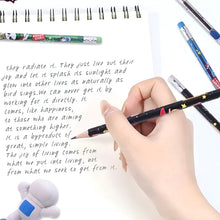 they radiate it. They just live out their
joy and let it splash its sunlight and
glow into other lives as naturally as
bird sings. We can never get it by
working for it directly. It
comes, like happiness,
to those who are aiming
at something higher.
It is a byproduct of
great, simple living.
The joy of living comes from
what we put into living, not
from what we seek to get from it.